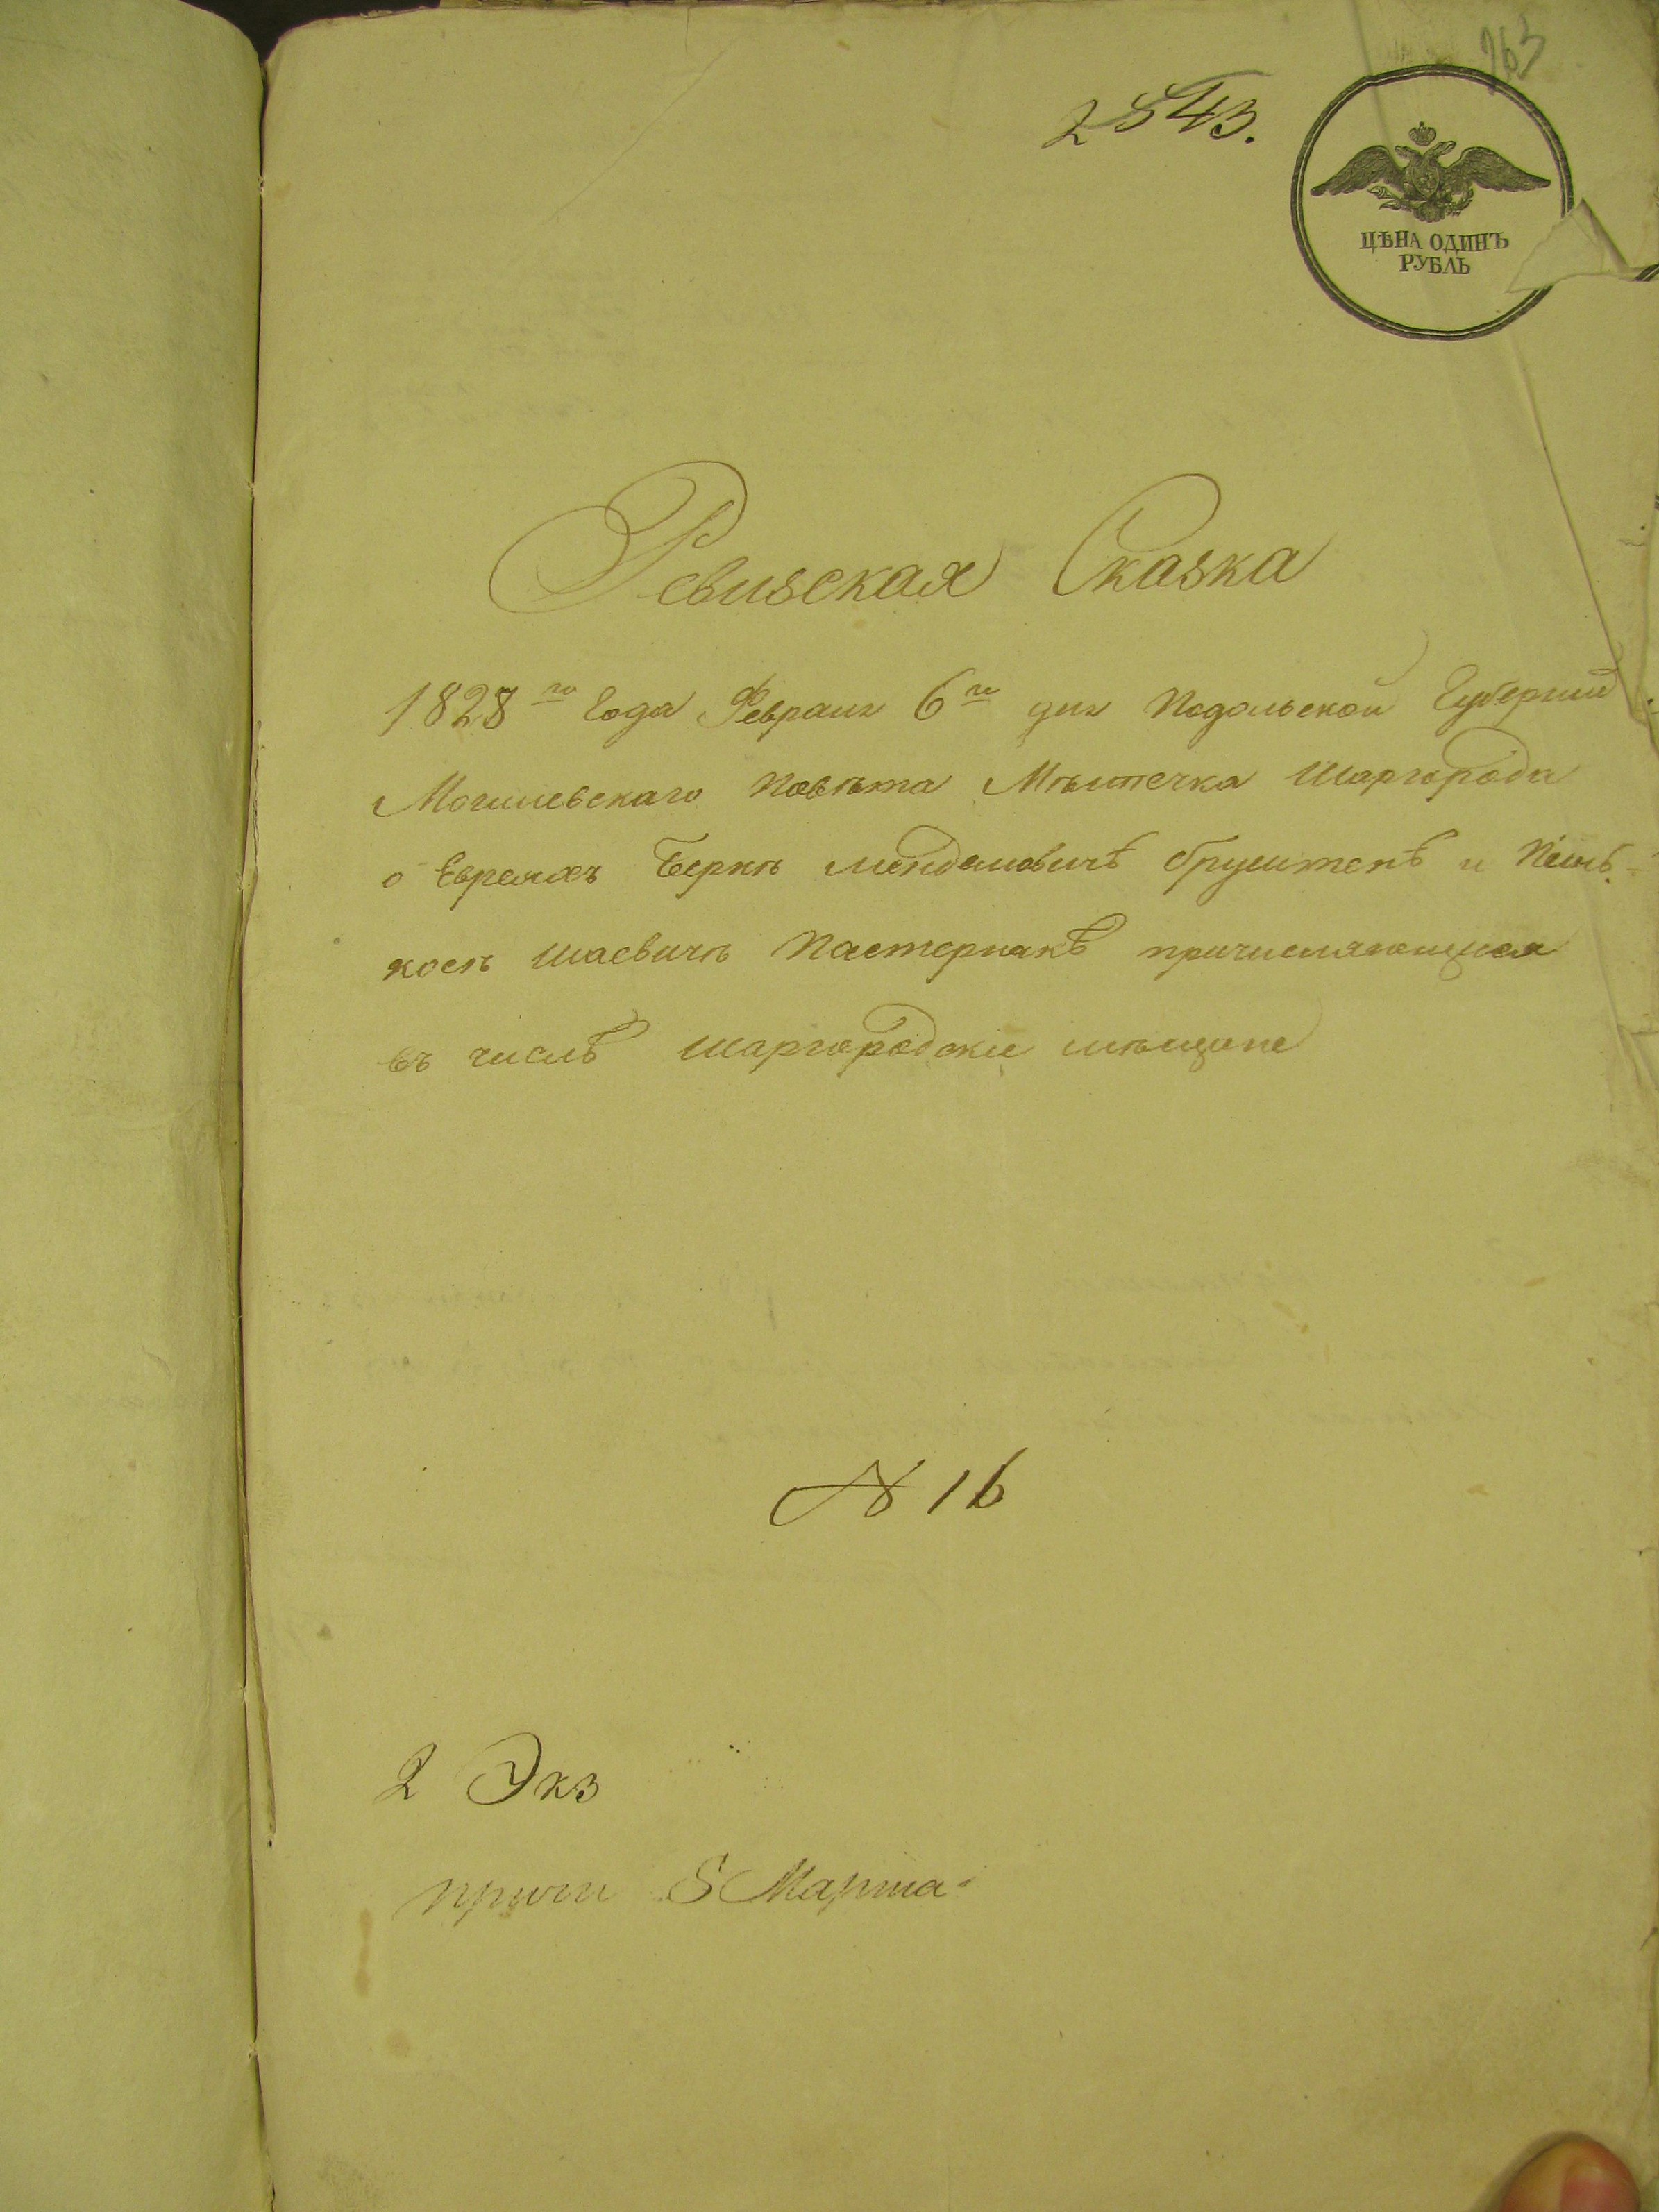 163
2543.
ЦѢНА ОДИНЪ
РУБЛЬ
Ревизская Сказка
1828го Года Февраля 6го дня Подольской Губернии
Могилевскаго Повѣта Мѣстечка Шаргорода
о Евреяхъ Беркѣ Менделовичѣ и
Шаевичѣ Пастернакѣ причисляющиеся
въ числѣ Шаргородские мѣщане
№ 16
2 Экз
Марта